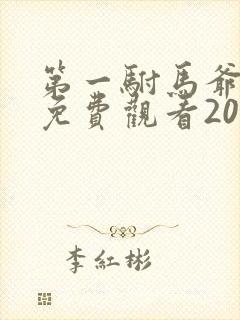 第一駙馬爺
免費觀看20
李紅彬